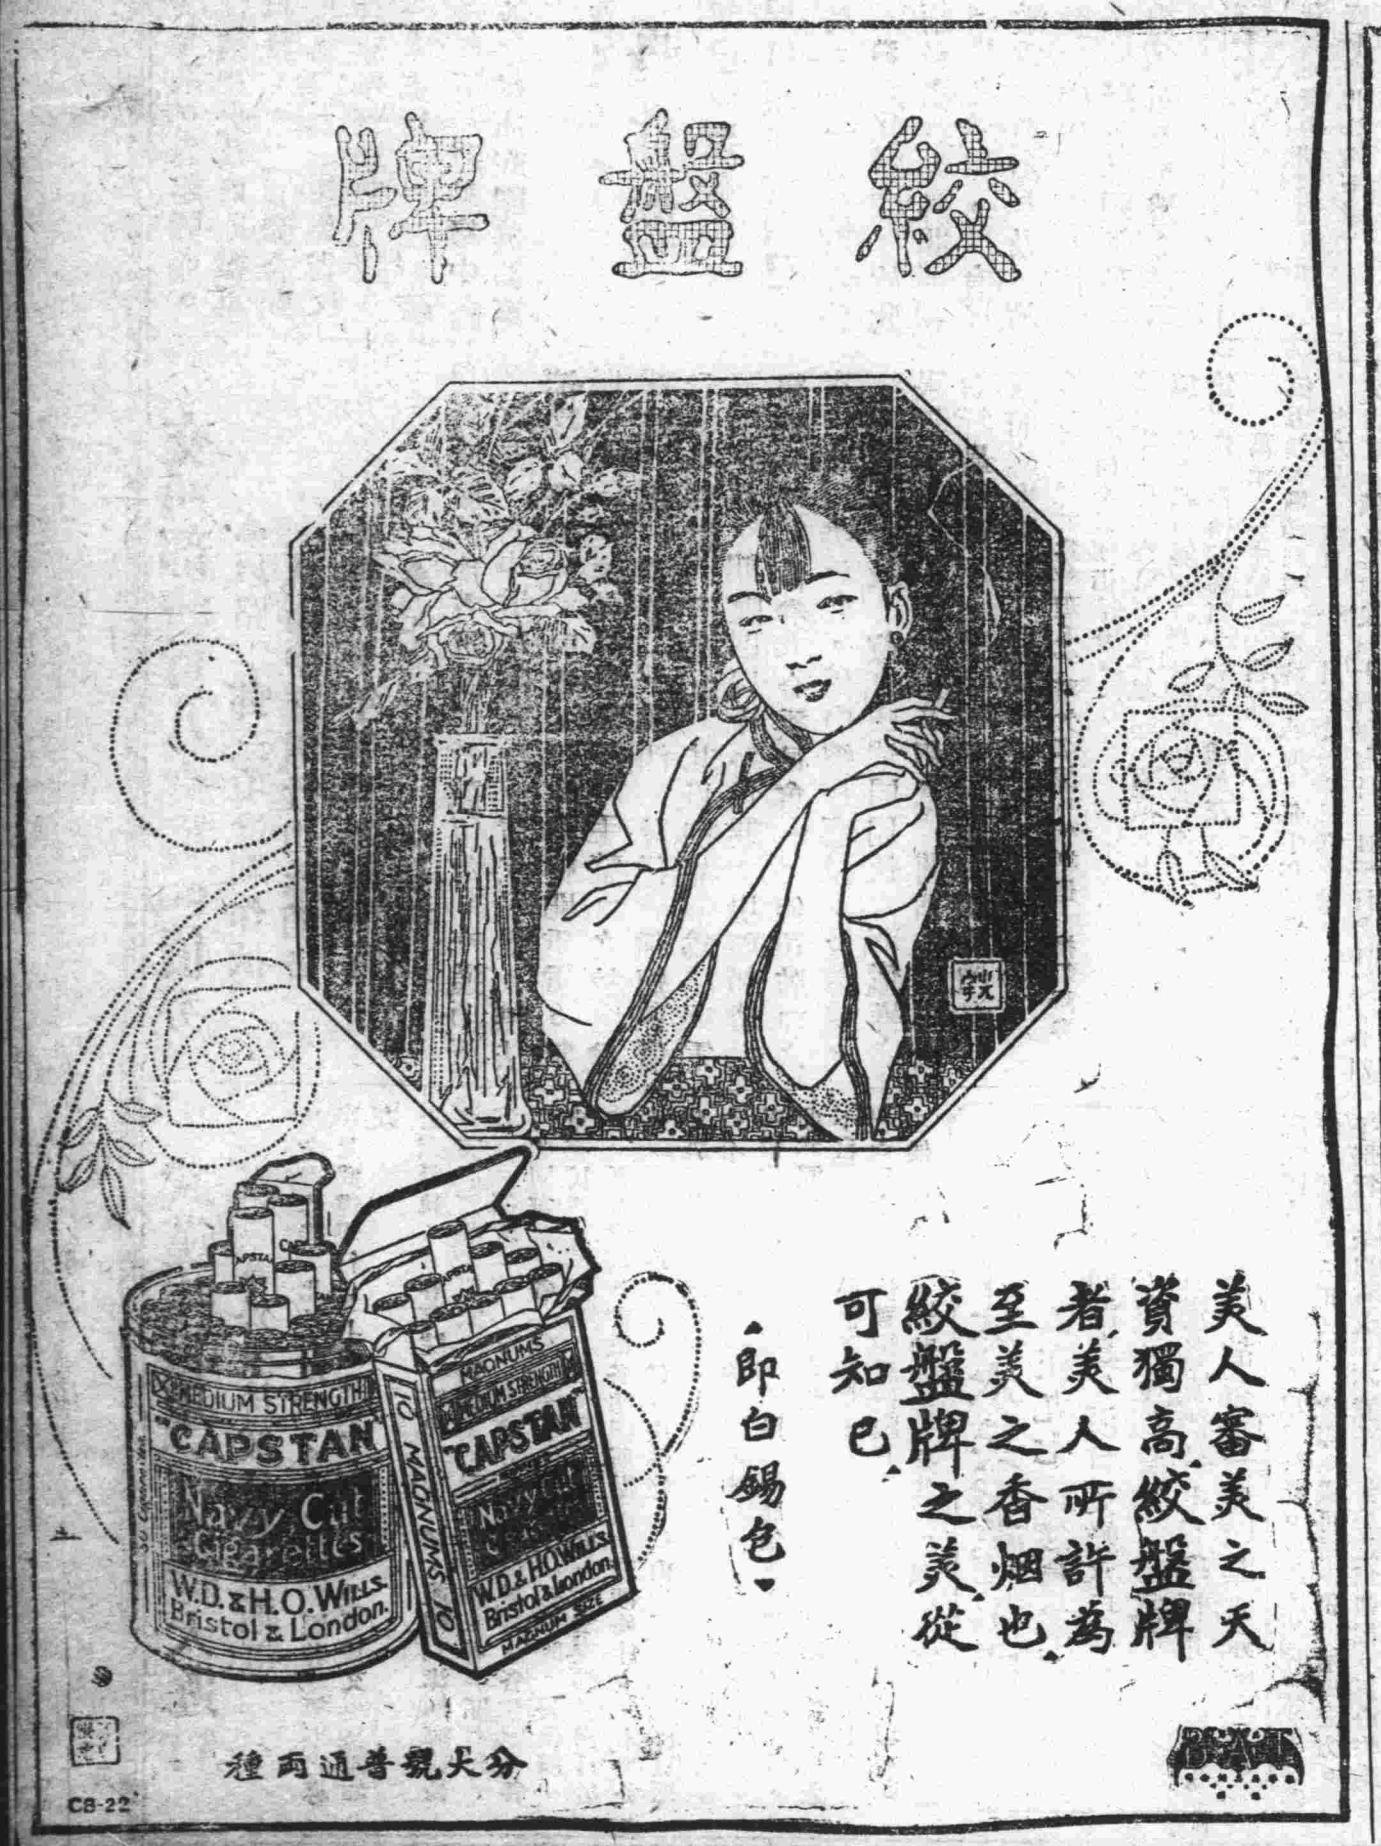 絞盤牌
美人審美之天
資獨高絞盤牌
者美人所許為
至美之香烟也
絞盤牌之美從
可知已
即白錫包
MEDIUM STRENGTH
"CAPSTAN"
Navy Cut
Cigarettes
W.D. & H.O. WILLS.
Bristol & London.
MAGNUMS
MEDIUM STRENGTH
"CAPSTAN"
Navy Cut
W.D. & H.O. WILLS.
Bristol & London.
MAGNUM SIZE
10 MAGNUMS 10
分大號普通両種
CB-22